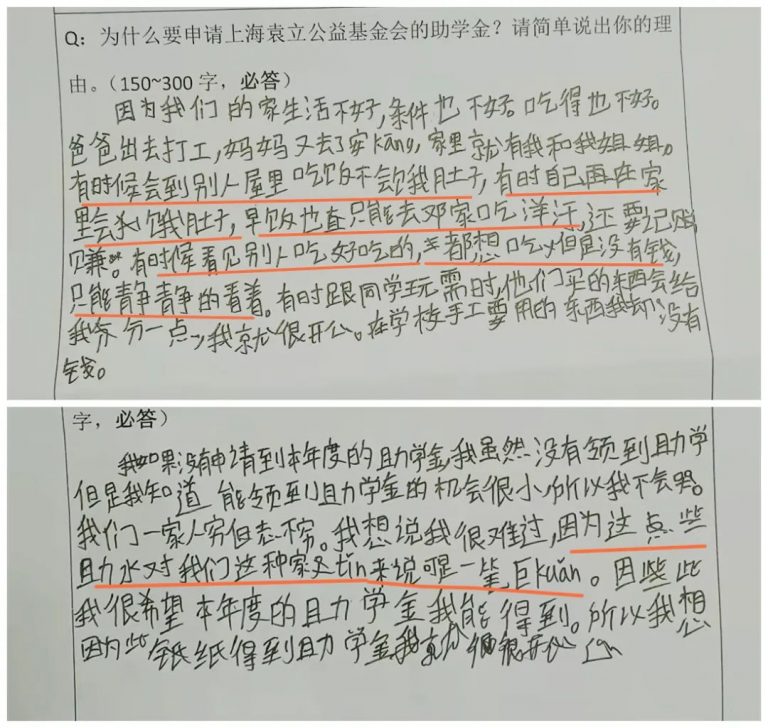 Q：为什么要申请上海袁立公益基金会的助学金？请简单说出你的理
由。（150~300 字，必答）
因为我们的家生活不好，条件也不好。吃得也不好。
爸爸出去打工，妈妈又去了安kāng，家里就有我和我姐姐。
有时候会到别人屋里吃饭不会饿我肚子，有时自己再在家
里会饿我肚子，早饭也只能去邓家吃洋汗，还要记账
赚。有时候看见别人吃好吃的，都想吃，但是没有钱，
只能静静的看着。有时跟同学玩需时，他们买的东西会给
我分一点，我就很开心。在学校手工要用的东西我却没有
钱。
字，必答）
我如果没有申请到本年度的助学金，我虽然没有领到助学
但是我知道能领到助学金的机会很小，所以我不会哭。
我们一家人穷但志不穷。我想说我很难过，因为这点些
助水对我们这种家庭tín来说呢是一笔巨kuǎn。因些些
我很希望本年度的助学金我能得到。所以我想
因为些纸得到助学金我就很开心